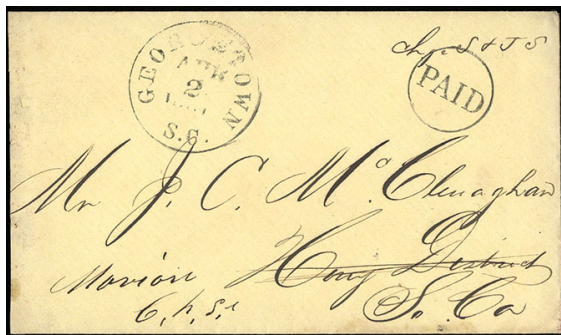 GEORGETOWN
APR
2
S.C.
PAID
Mr J. C. McClenaghan
Horry District
Marion
C. H. S. C
So. Ca